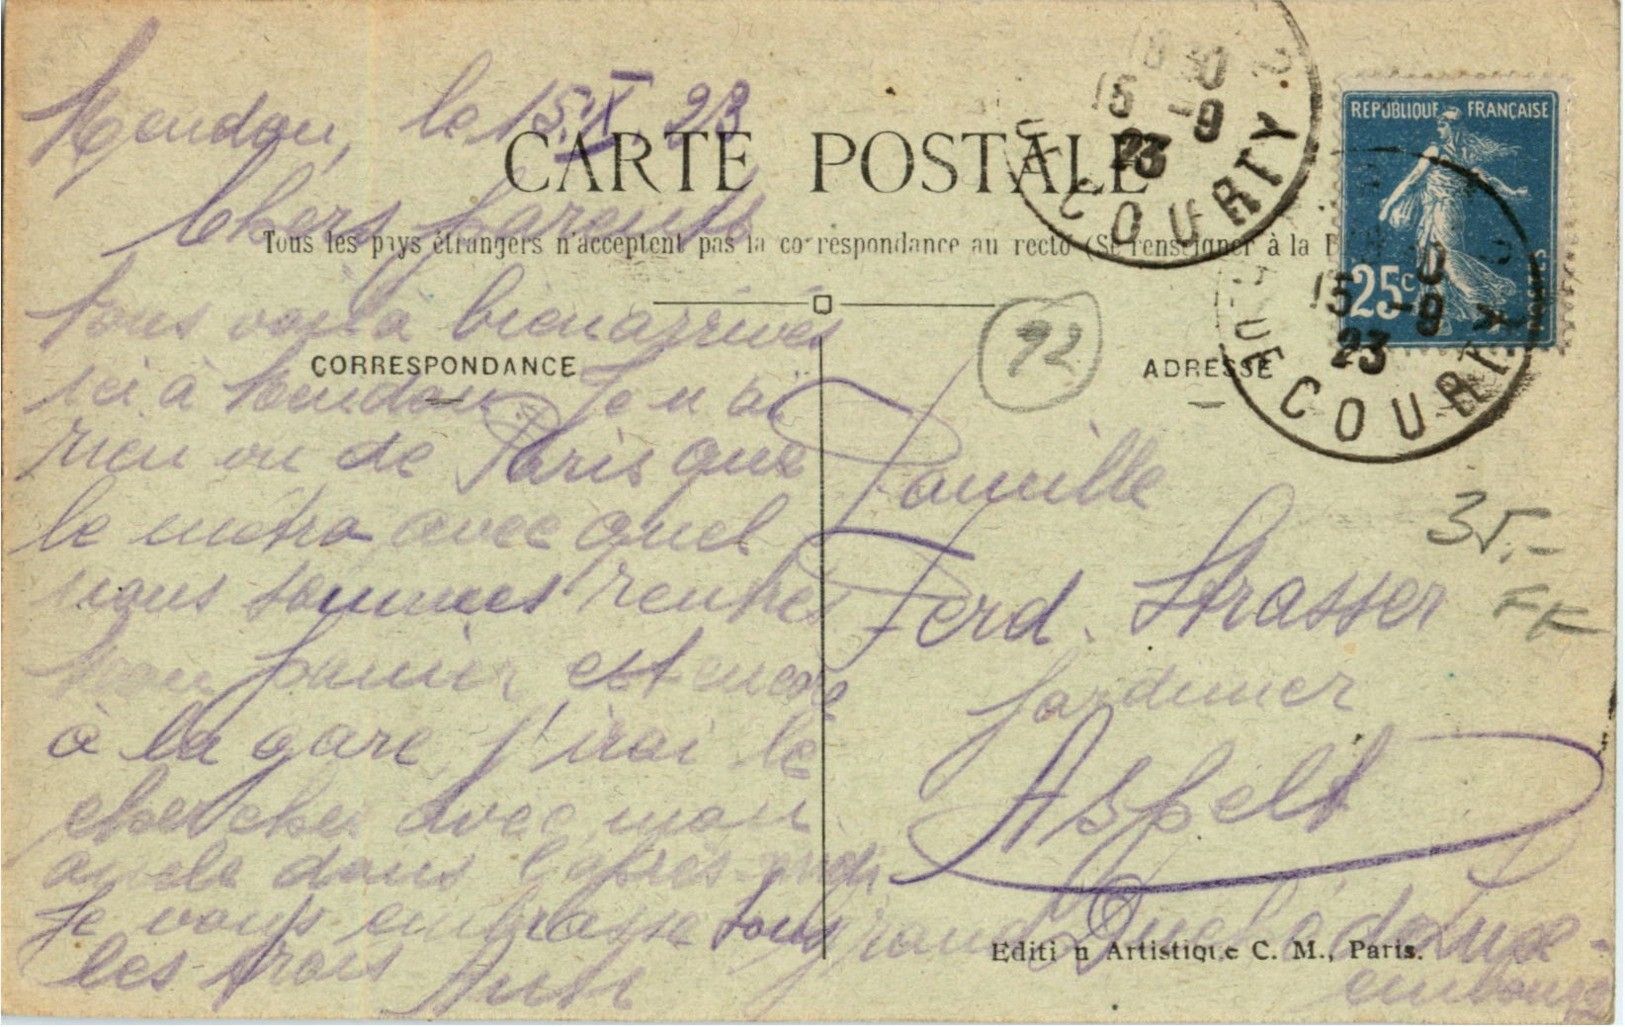 Meudon, le 15.IX.23
CARTE POSTALE
Chers parents
Tous les pays étrangers n'acceptent pas la correspondance au recto (Se renseigner à la
Nous voilà bien arrivés
ici à Meudon. Je n'ai
rien vu de Paris que
le métro avec quel
nous sommes rentrés
Mon panier est encore
à la gare, j'irai le
chercher avec mon
oncle dans l'après-midi
Je vous embrasse tous
les trois
CORRESPONDANCE
ADRESSE
92
Famille
Ferd. Strasser
Jardinier
Aspelt
Grand Duché de Lux-
embourg
35.-
FK
Editi n Artistique C. M., Paris.
REPUBLIQUE FRANÇAISE
25c
15 -9
23
COURTY
15 -9
23
COURTY